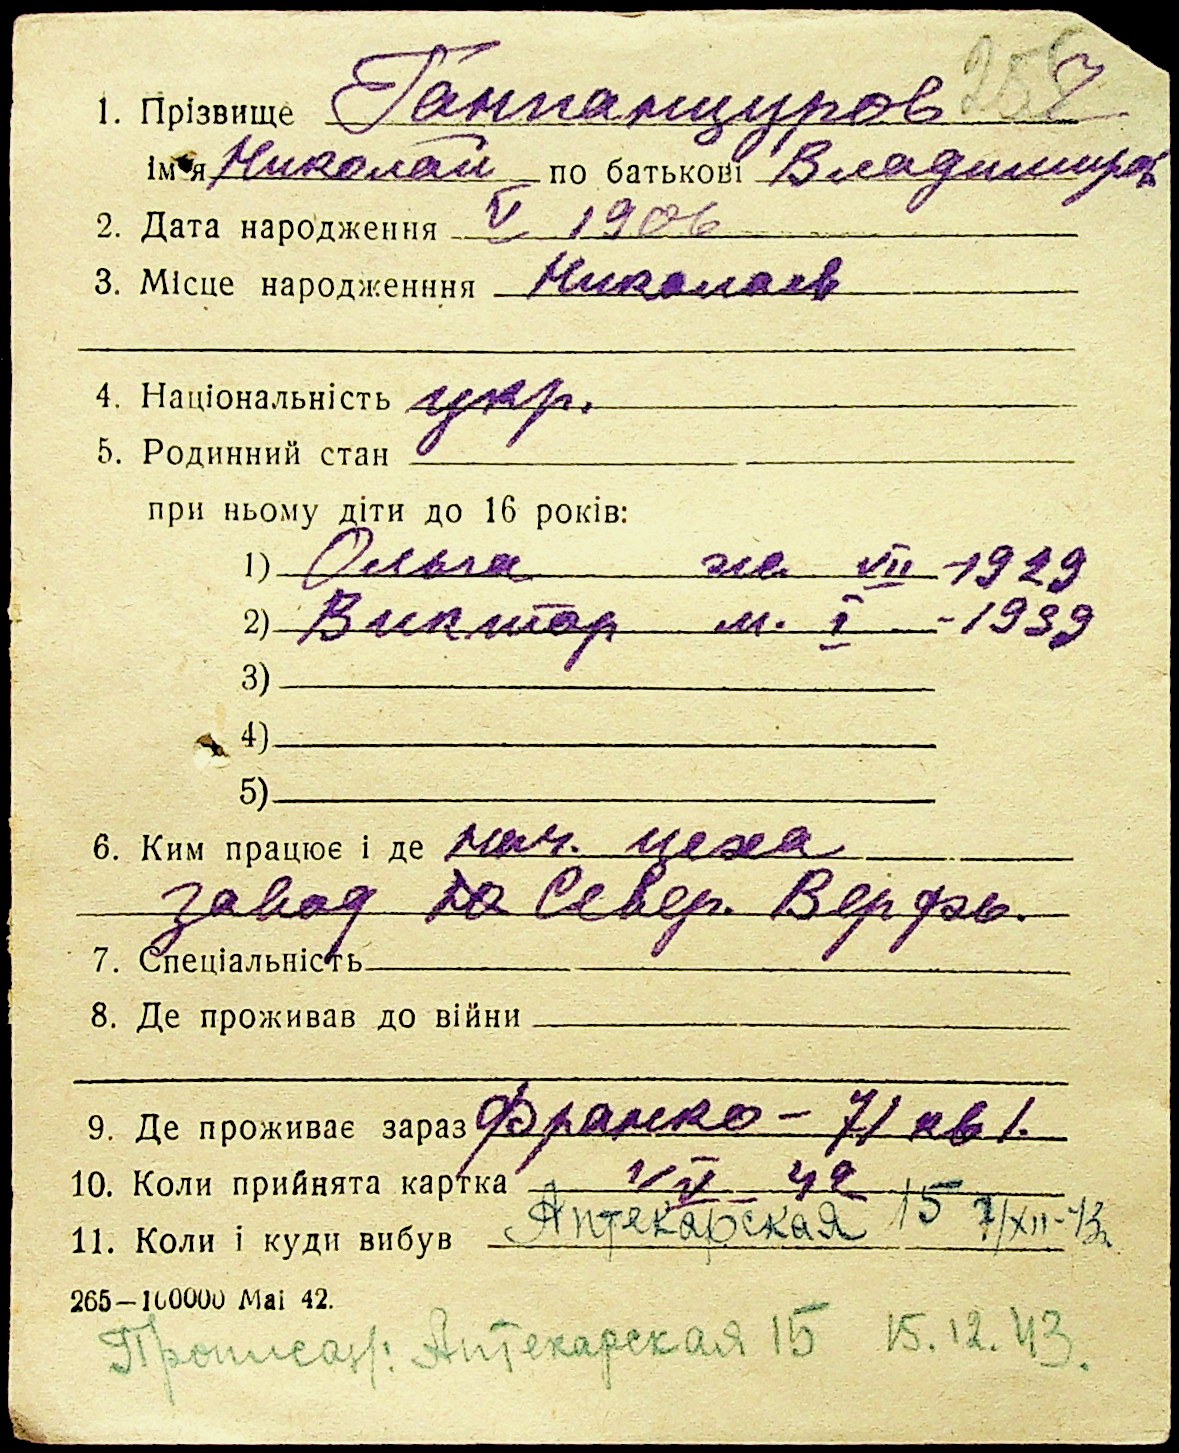 256 7
1. Прізвище Ганпанцуров
ім'я Николай по батькові Владимиров
2. Дата народження V 1906
3. Місце народженння Николаев
4. Національність укр.
5. Родинний стан
при ньому діти до 16 років:
1) Ольга ж. VII -1929
2) Виктор м. I -1939
3)
4)
5)
6. Ким працює і де нач. цеха
завод Север. Верфь.
7. Спеціальність
8. Де проживав до війни
9. Де проживає зараз Франко - 71 кв 1.
10. Коли прийнята картка 42
11. Коли і куди вибув Аптекарская 15 7/XII-43.
265—100000 Маі 42.
Прописан: Аптекарская 15 15.12.43.